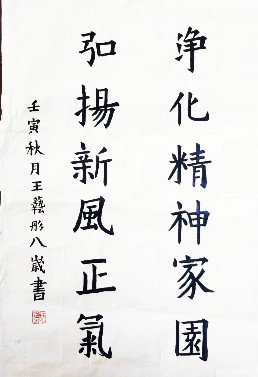 净化精神家園
弘揚新風正氣
壬寅秋月王藝彤八歲書